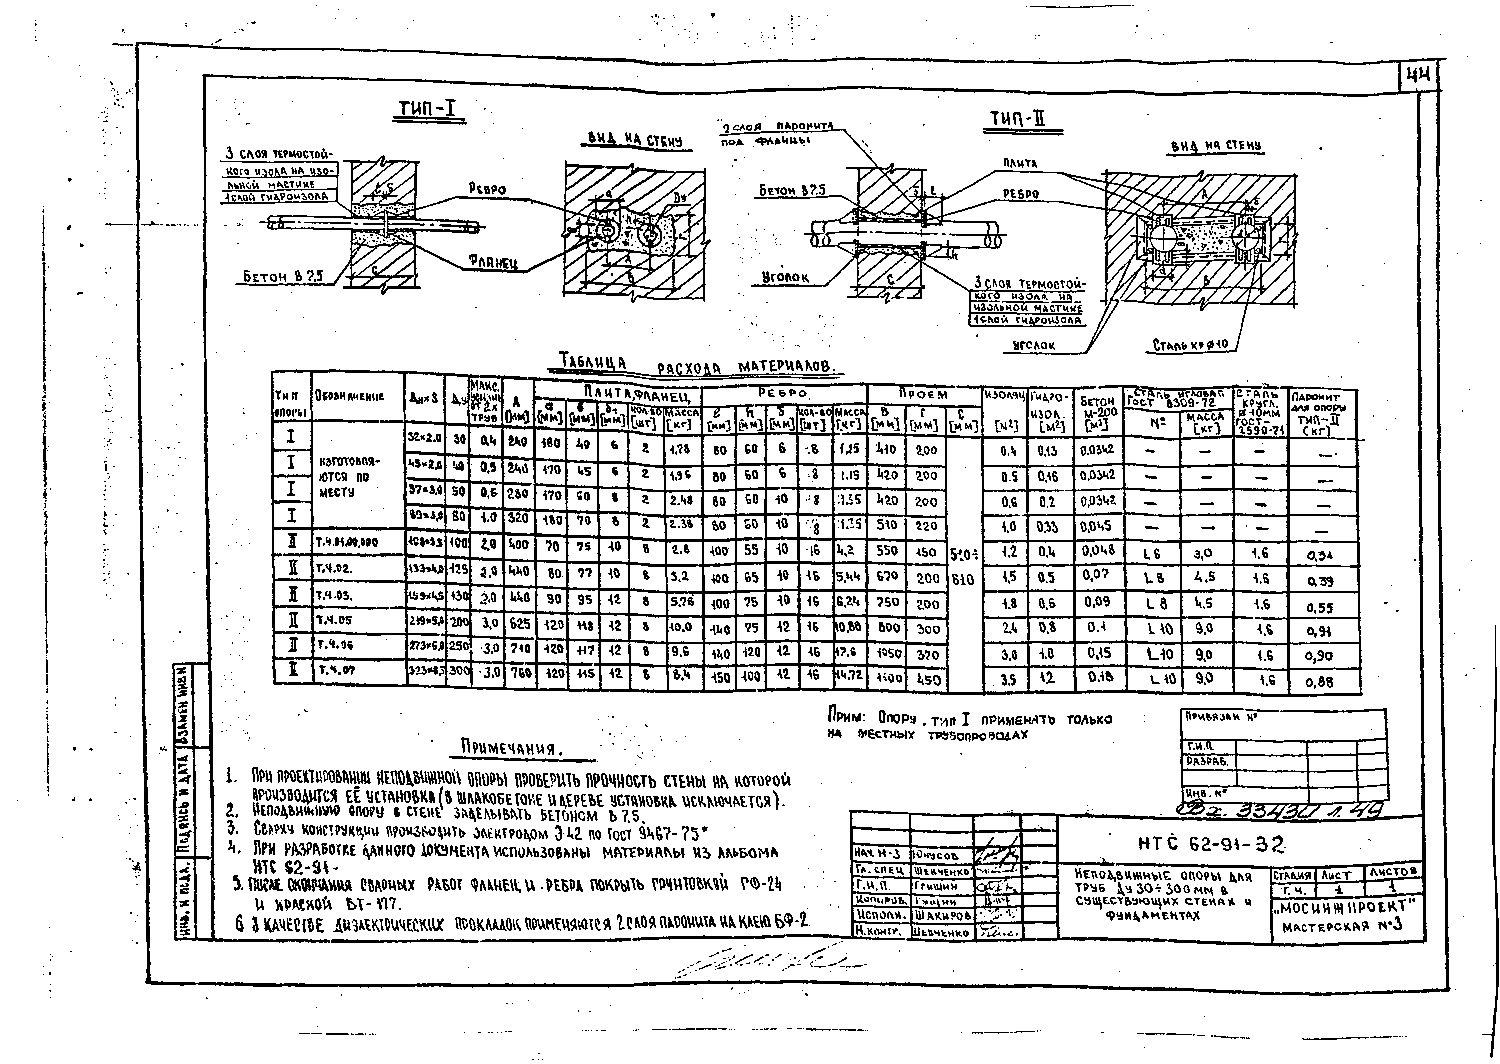 44
ТИП-I
ВИД НА СТЕНУ
3 СЛОЯ ТЕРМОСТОЙ-
КОГО ИЗОЛА НА ИЗО-
ЛЬНОЙ МАСТИКЕ
1 СЛОЙ ГИДРОИЗОЛА
РЕБРО
ФЛАНЕЦ
БЕТОН В 7.5
ТИП-II
ВИД НА СТЕНУ
2 СЛОЯ ПАРОНИТА
ПОД ФЛАНЦЫ
ПЛИТА
БЕТОН В 7.5
РЕБРО
УГОЛОК
3 СЛОЯ ТЕРМОСТОЙ-
КОГО ИЗОЛА НА
ИЗОЛЬНОЙ МАСТИКЕ
1 СЛОЙ ГИДРОИЗОЛА
УГОЛОК
СТАЛЬ КР Ø10
ТАБЛИЦА РАСХОДА МАТЕРИАЛОВ.
ТИП ОПОРЫ ОБОЗНАЧЕНИЕ Дн×S Ду А [мм] ПЛИТА, ФЛАНЕЦ РЕБРО ПРОЕМ ИЗОЛЯЦ [м²] ГИДРО-ИЗОЛ. [м²] БЕТОН М-200 [м³] СТАЛЬ УГЛОВАЯ ГОСТ 8509-72 СТАЛЬ КРУГЛ. Ø10ММ ГОСТ-2590-71 ПАРОНИТ ДЛЯ ОПОРЫ ТИП-II (кг)
КОЛ-ВО [шт] МАССА [кг] КОЛ-ВО [шт] МАССА [кг] В [мм] Г [мм] С [мм] № МАССА [кг]
I ИЗГОТОВЛЯ-ЮТСЯ ПО МЕСТУ 32×2.0 30 0,4 240 180 40 6 2 1,78 80 60 6 8 1,15 410 200 0.4 0,13 0,0342 — — — —
I 45×2,0 40 0,5 240 170 45 6 2 80 60 6 8 1,15 420 200 0.5 0,16 0,0342 — — — —
I 57×3,0 50 0,6 280 170 60 8 2 2.48 80 60 10 8 420 200 0,6 0,2 0,0342 — — — —
I 89×3,0 80 1.0 320 180 70 8 2 2.38 80 60 10 8 510 220 1,0 0,33 0,045 — — — —
II Т.Ч.01.00.000 108×3,5 100 2,0 400 70 75 10 8 2.8 100 55 10 16 4,2 550 150 510÷610 1.2 0,4 0,048 L 6 3,0 1.6 0,34
II Т.Ч.02. 133×4,0 125 2,0 440 80 77 10 8 3,2 100 65 10 16 5,44 670 200 1,5 0.5 0,07 L 8 4.5 1.6 0,39
II Т.Ч.03. 159×4,5 150 2,0 440 90 95 12 8 5,76 100 75 10 16 6,24 750 200 1.8 0,6 0,09 L 8 4.5 1.6 0,55
II Т.Ч.05 219×5,0 200 3,0 625 120 118 12 8 10,0 140 75 12 16 10,88 800 300 2,4 0,8 0.1 L 10 9,0 1,6 0,91
II Т.Ч.06 273×6,0 250 3,0 710 120 117 12 8 9,6 140 120 12 16 17,6 1050 370 3,0 1.0 0,15 L 10 9,0 1.6 0,90
II Т.Ч.07 325×8,5 300 3,0 760 120 115 12 8 8,4 150 100 12 16 14,72 1100 450 3.5 1.2 0.18 L 10 9,0 1,6 0,88
ПРИМ: ОПОРУ, ТИП I ПРИМЕНЯТЬ ТОЛЬКО
НА МЕСТНЫХ ТРУБОПРОВОДАХ
ПРИМЕЧАНИЯ.
1. ПРИ ПРОЕКТИРОВАНИИ НЕПОДВИЖНОЙ ОПОРЫ ПРОВЕРИТЬ ПРОЧНОСТЬ СТЕНЫ НА КОТОРОЙ
ПРОИЗВОДИТСЯ ЕЁ УСТАНОВКА (В ШЛАКОБЕТОНЕ И ДЕРЕВЕ УСТАНОВКА ИСКЛЮЧАЕТСЯ).
2. НЕПОДВИЖНУЮ ОПОРУ В СТЕНЕ ЗАДЕЛЫВАТЬ БЕТОНОМ В 7.5.
3. СВАРКУ КОНСТРУКЦИИ ПРОИЗВОДИТЬ ЭЛЕКТРОДОМ Э42 ПО ГОСТ 9467-75*
4. ПРИ РАЗРАБОТКЕ ДАННОГО ДОКУМЕНТА ИСПОЛЬЗОВАНЫ МАТЕРИАЛЫ ИЗ АЛЬБОМА
НТС 62-91-
5. ПОСЛЕ ОКОНЧАНИЯ СВАРНЫХ РАБОТ ФЛАНЕЦ И РЕБРА ПОКРЫТЬ ГРУНТОВКОЙ ГФ-24
И КРАСКОЙ БТ-177.
6 В КАЧЕСТВЕ ДИЭЛЕКТРИЧЕСКИХ ПРОКЛАДОК ПРИМЕНЯЮТСЯ 2 СЛОЯ ПАРОНИТА НА КЛЕЮ БФ-2
ПРИВЯЗАН №
Г.И.П.
РАЗРАБ.
ИНВ. №
Вх. 33434 л. 49
НАЧ. М-3 ЮНУСОВ
ГЛ. СПЕЦ ШЕВЧЕНКО
Г.И.П. ГРИШИН
КОПИРОВ.
ИСПОЛН. ШАКИРОВ
Н.КОНТР. ШЕВЧЕНКО
НТС 62-91-32
НЕПОДВИЖНЫЕ ОПОРЫ ДЛЯ
ТРУБ ДУ 30÷300ММ В
СУЩЕСТВУЮЩИХ СТЕНАХ И
ФУНДАМЕНТАХ
СТАДИЯ ЛИСТ ЛИСТОВ
Т.Ч. 1 1
"МОСИНЖПРОЕКТ"
МАСТЕРСКАЯ №3
ВЗАМЕН ИНВ.№
ПОДПИСЬ И ДАТА
ИНВ. № ПОДЛ.